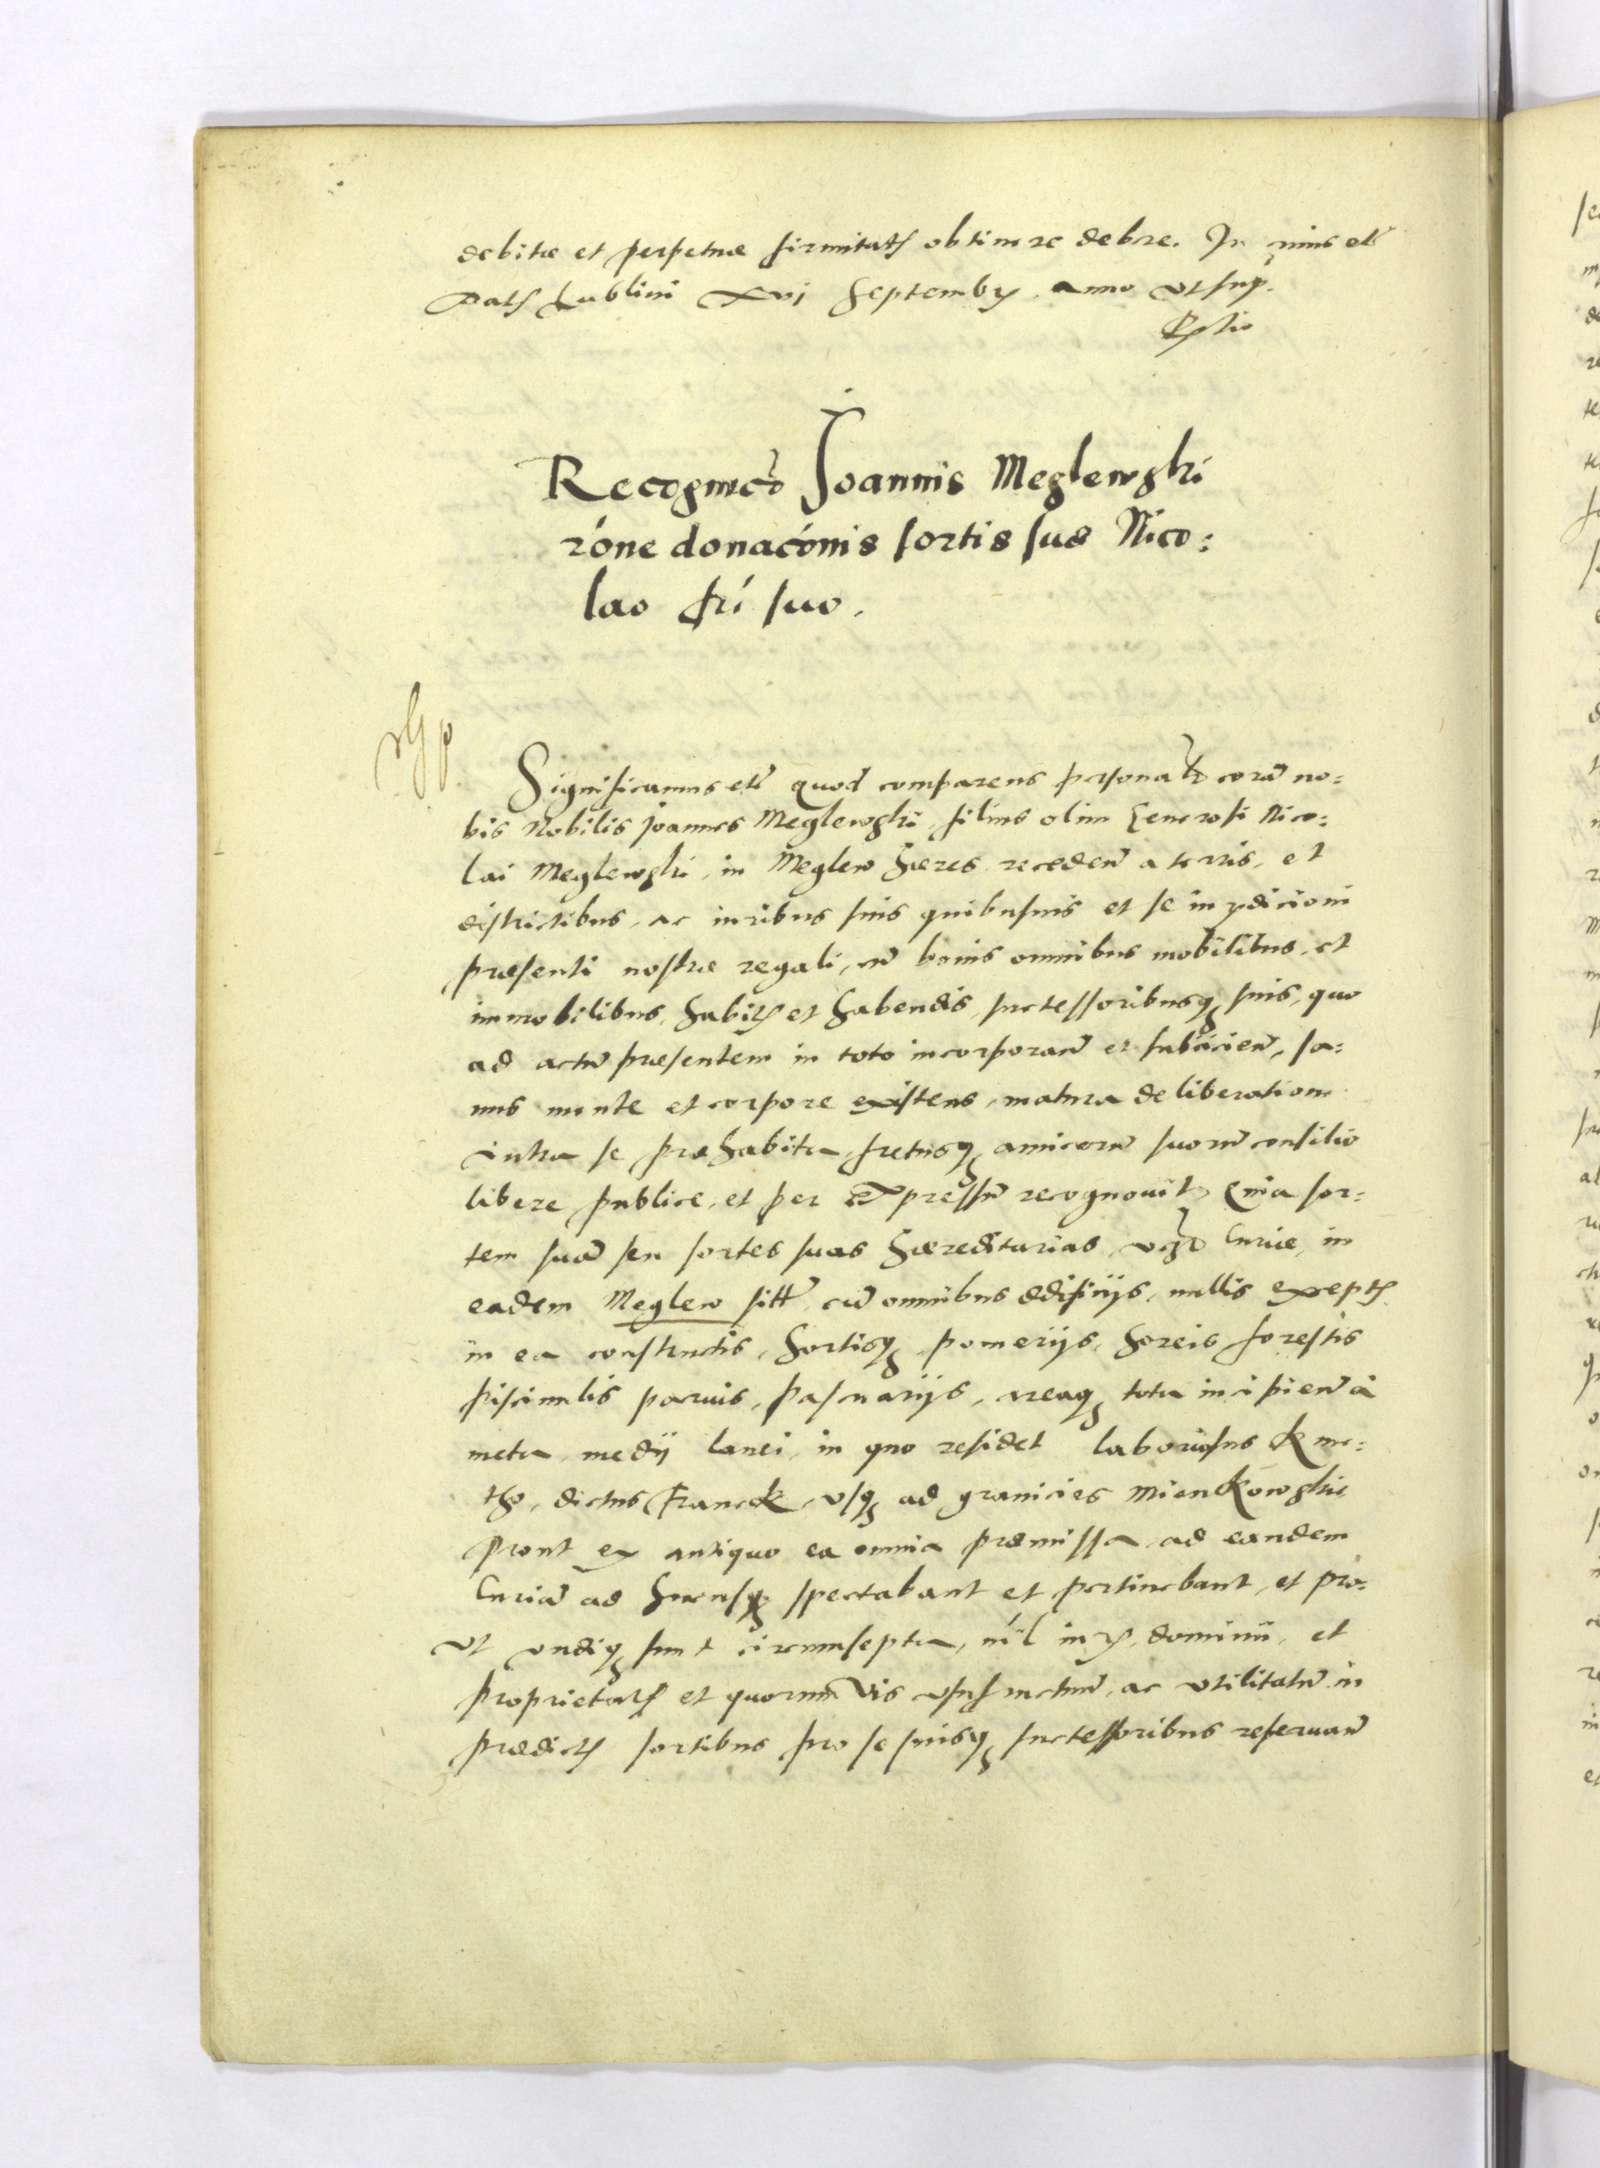 debitæ et perpetuæ firmitatis obtinere debere. In cuius etc̃
Datis Lublini xvi Septembris anno vt supr.
Recognic̃o Joannis Meglewski
róne donacónis sortis suæ Nico:
lao frí suo.
Significamus etc̃ quod comparens personalr̃ corã no:
bis Nobilis Joannes Meglewski, filius olim Generosi Nico:
lai Meglewski, in Meglew hæres receden̄ a terris, et
districtibus, ac iuribus suis quibusuis et se iurisdicioni
præsenti nostræ regali, cũ bonis omnibus mobilibus, et
immobilibus, habitis et habendis, successoribusq; suis, quo
ad actũ præsentem in toto incorporan̄ et subiicien̄, sa:
nus mente et corpore existens, matura deliberatione
intra se præhabita, fretusq; amicorũ suorũ consilio
libere publice, et per expressũ recognouit, Quia sor:
tem suã seu sortes suas hæreditarias, vꝫ Curiæ, in
eadem Meglew sitt̃, cũ omnibus ædificijs, nullis exceptis
in ea constructis, hortisq; pomerijs, horeis forestis
piscinulis paruis, pascuarijs, areaq; tota incipien̄ a
meta medij lanei, in quo residet laboriosus Kme:
tho, dictus Franck, vsq; ad granicies Mienkowskie
prout ex antiquo ea omnia præmissa ad eandem
Curiã ad hucusq; spectabant et pertinebant, et pro:
vt vndiq; sunt circumsepta, níl iuris, dominii, et
proprietatis et quorumvis vsufructuũ, ac vtilitatũ in
prædictis sortibus pro se suisq; successoribus reseruan̄